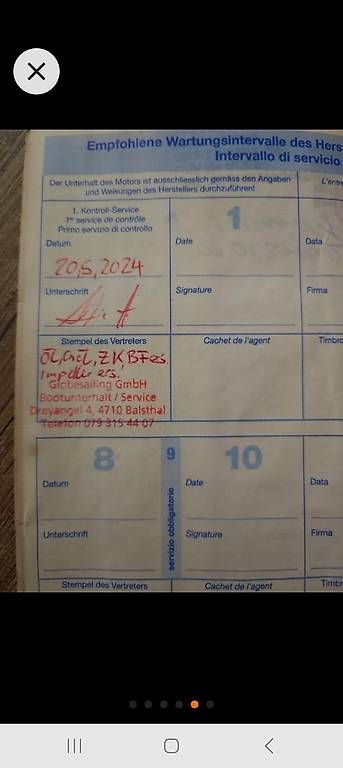 Empfohlene Wartungsintervalle des Hers
Intervallo di servicio
Der Unterhalt des Motors ist ausschliesslich gemäss den Angaben
und Weisungen des Herstellers durchzuführen!
L'entre
1. Kontroll-Service
1er service de contrôle
Primo servizio di controllo
1
Datum
Date
Data
20,5,2024
Unterschrift
Signature
Firma
Stempel des Vertreters
Cachet de l'agent
Timbro
ÖL,
ZKBF es.
Impeller ers.
Globesailing GmbH
Bootunterhalt / Service
Dreyangel 4, 4710 Balsthal
Telefon 079 315 44 07
8
9
10
servizio obbligatorio
Datum
Date
Data
Unterschrift
Signature
Firma
Stempel des Vertreters
Cachet de l'agent
Timbr